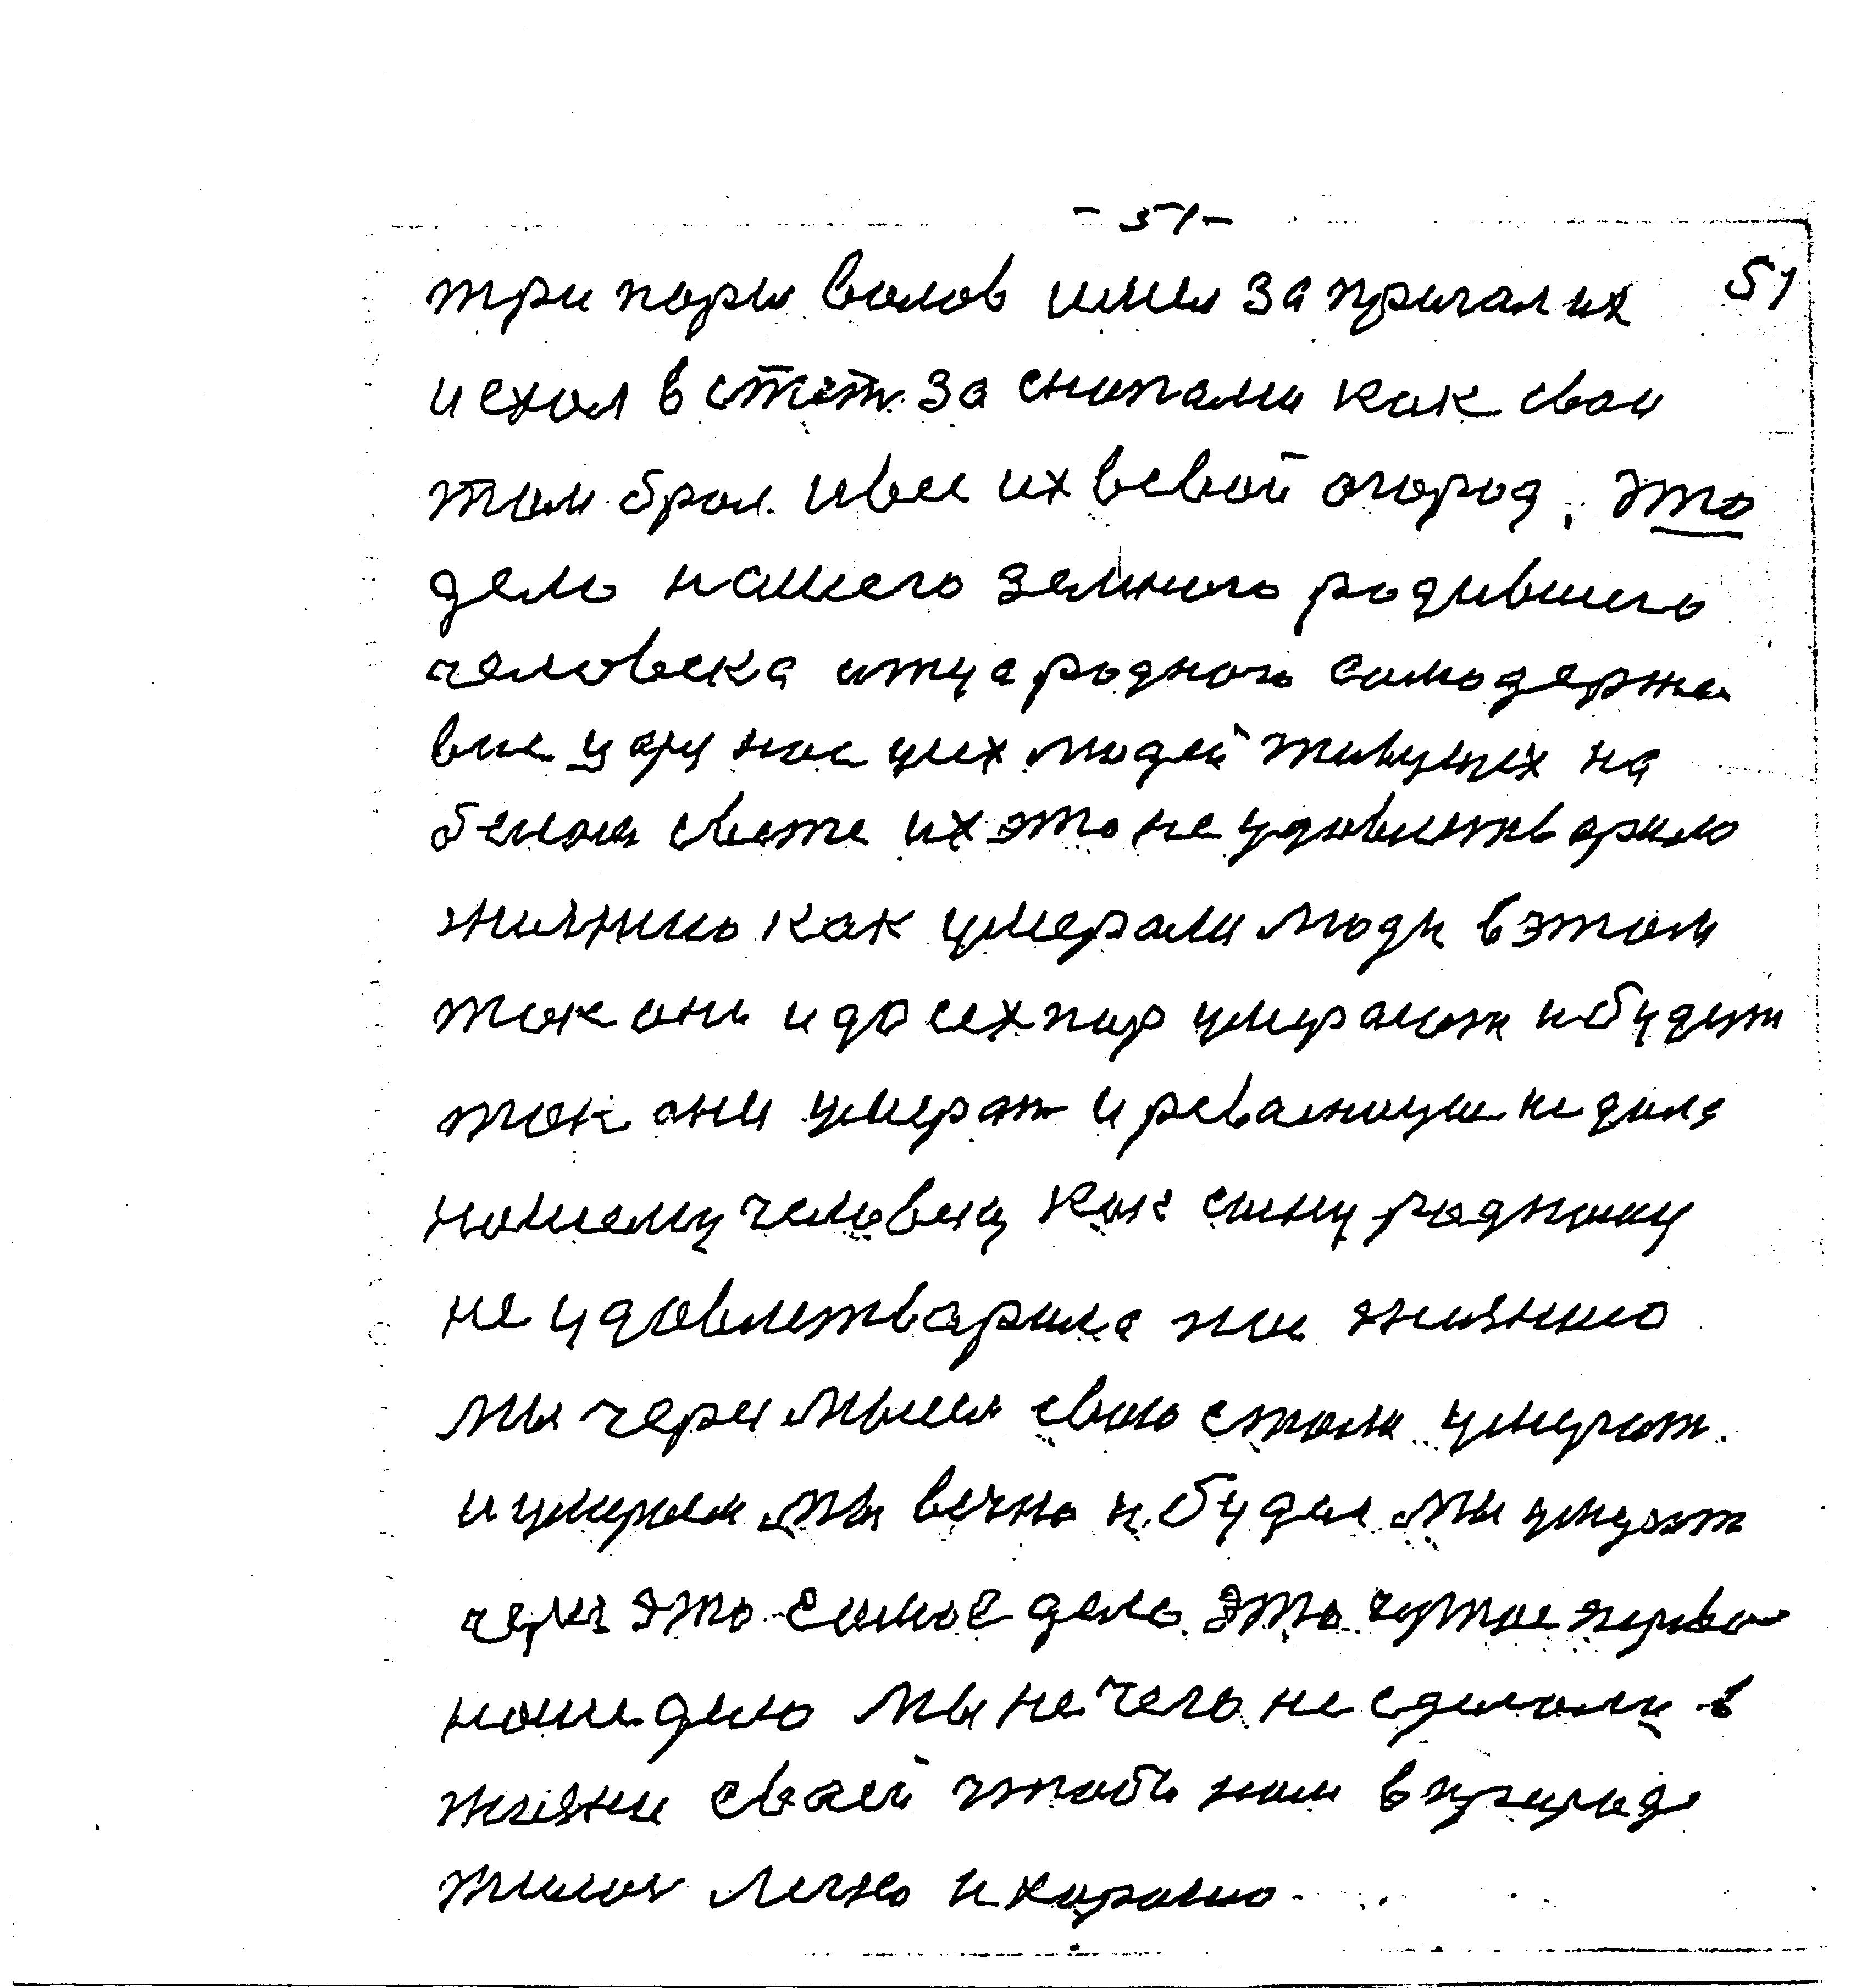 - 51 -
51
три пары валов имел запригал их
и ехал в степ за снипами как свои
там брал и вес их в свой огород, это
дело нашего земного родившего
человека отца родного самодержа
вие цару нас цих людей живущих на
белом свете их это не удовлитварило
жизнию как умерали люди в этом
так они и до сех пор умирают и будут
так они умерат и революцие не дала
нашему человеку как сыну родному
не удовлетварила по жизнию
мы через мысль свою стали умерат
и умераем мы вечно и будем мы умерат
через это самое дело это чужое перво
наше дело мы нечего не сделали в
жизни своей чтобы нам в природе
жилос легко и харошо.